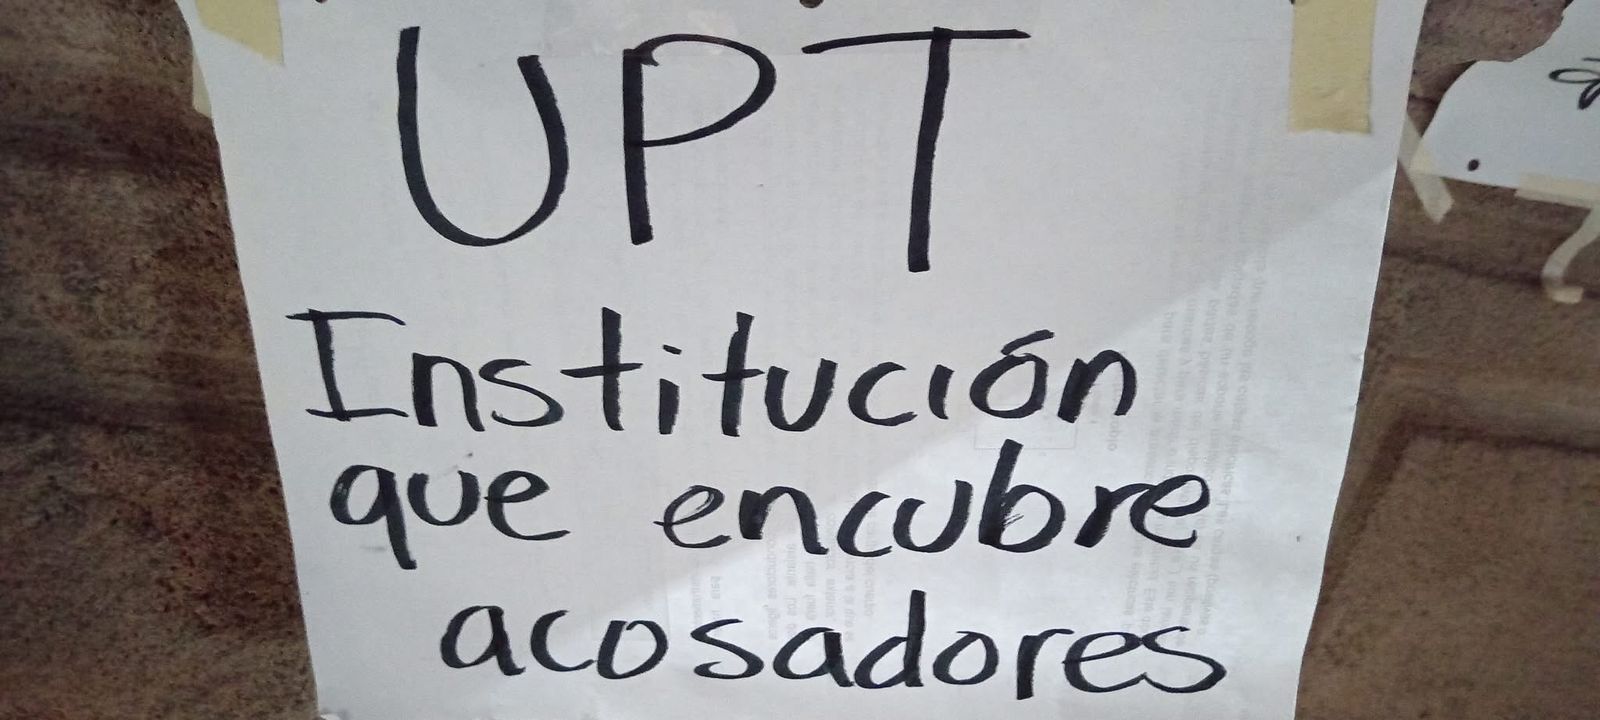 UPT
Institución
que encubre
acosadores